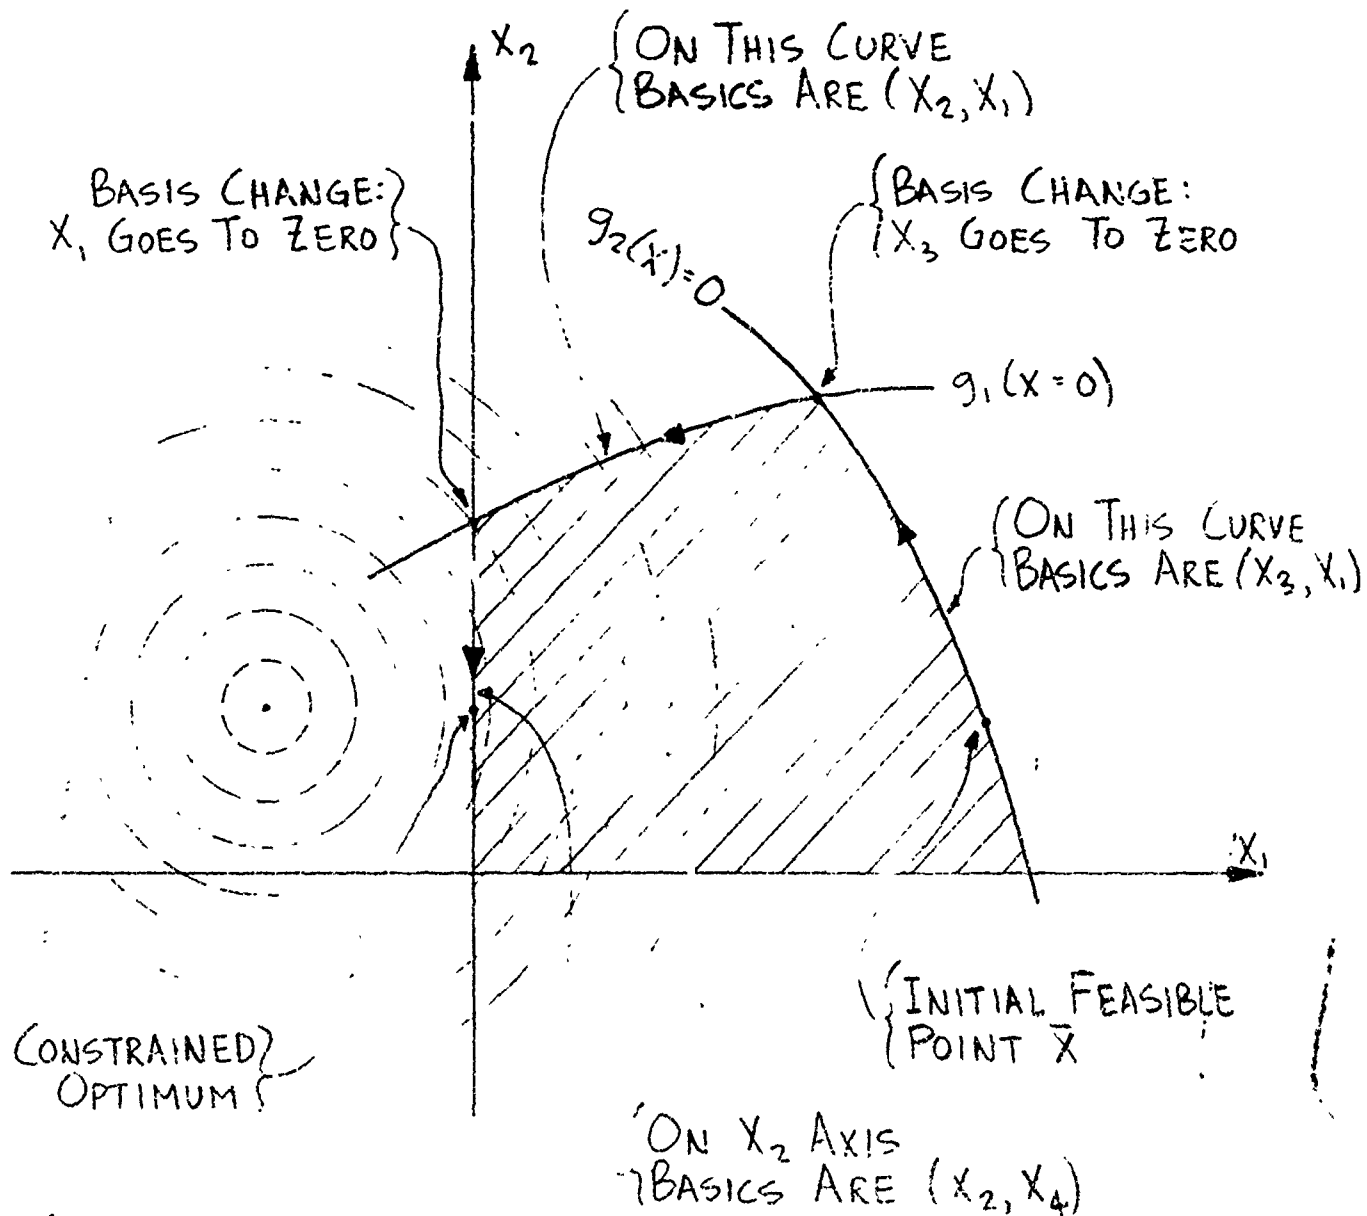 X₂
{ON THIS CURVE
BASICS ARE (X₂, X₁)
BASIS CHANGE:}
X₁ GOES TO ZERO
{BASIS CHANGE:
X₃ GOES TO ZERO
g₂(X)=0
g₁(X=0)
{ON THIS CURVE
BASICS ARE (X₃, X₁)
X₁
{INITIAL FEASIBLE
POINT X̄
CONSTRAINED}
OPTIMUM
ON X₂ AXIS
BASICS ARE (X₂, X₄)